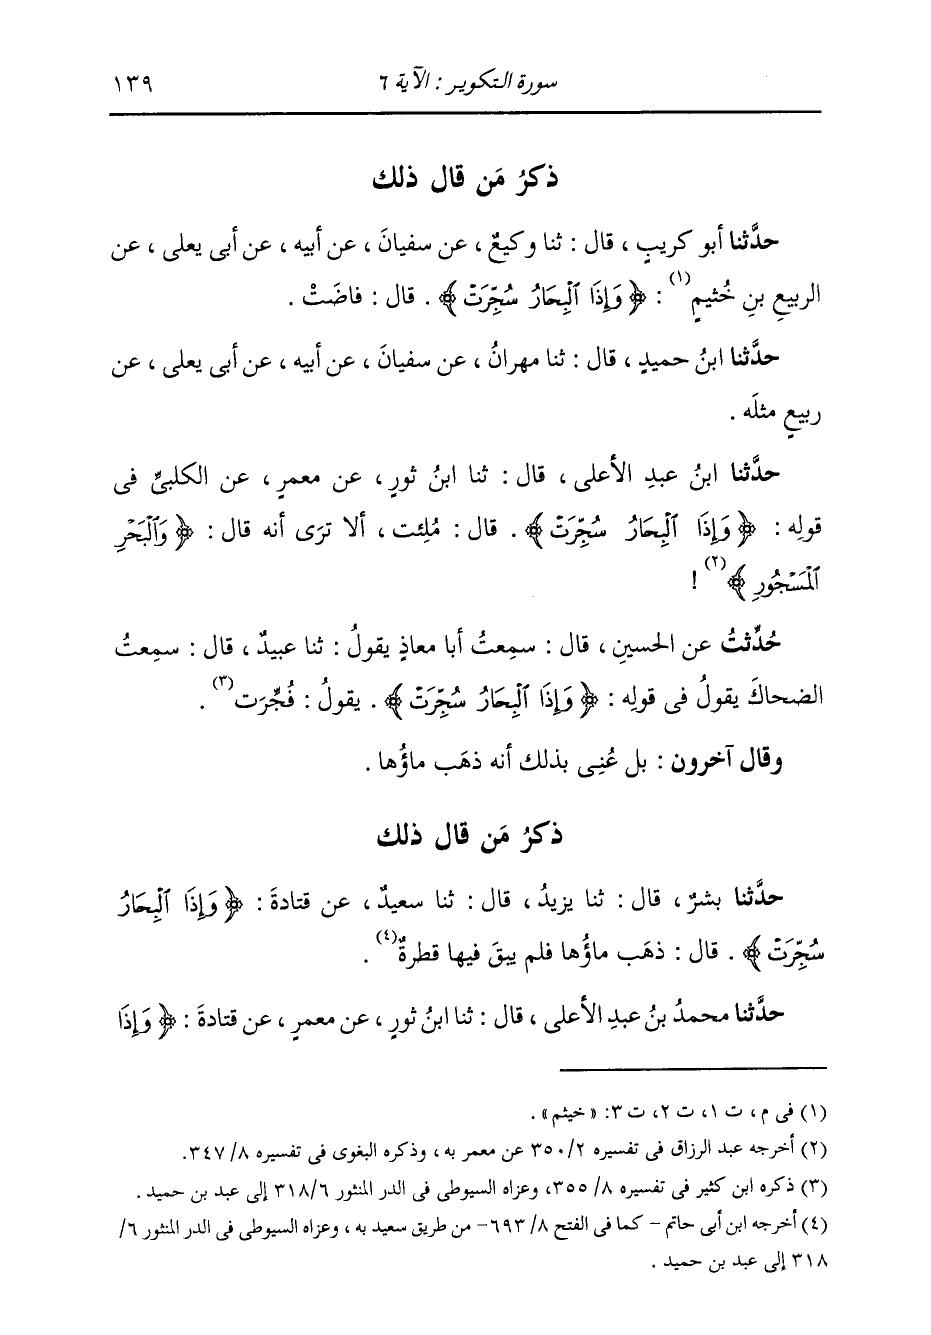 سورة التكوير : الآية ٦ ١٣٩
ذكرُ مَن قال ذلك
حدَّثنا أبو كريبٍ ، قال : ثنا وكيعٌ ، عن سفيانَ ، عن أبيه ، عن أبى يعلى ، عن
الربيعِ بنِ خُثيمٍ(١) : ﴿ وَإِذَا ٱلْبِحَارُ سُجِّرَتْ ﴾ . قال : فاضَتْ .
حدَّثنا ابنُ حميدٍ ، قال : ثنا مهرانُ ، عن سفيانَ ، عن أبيه ، عن أبى يعلى ، عن
ربيعٍ مثلَه .
حدَّثنا ابنُ عبدِ الأعلى ، قال : ثنا ابنُ ثورٍ ، عن معمرٍ ، عن الكلبىِّ فى
قولِه : ﴿ وَإِذَا ٱلْبِحَارُ سُجِّرَتْ ﴾ . قال : مُلِئت ، ألا ترَى أنه قال : ﴿ وَٱلْبَحْرِ
ٱلْمَسْجُورِ ﴾(٢) !
حُدِّثتُ عن الحسينِ ، قال : سمِعتُ أبا معاذٍ يقولُ : ثنا عبيدٌ ، قال : سمِعتُ
الضحاكَ يقولُ فى قولِه : ﴿ وَإِذَا ٱلْبِحَارُ سُجِّرَتْ ﴾ . يقولُ : فُجِّرَت(٣) .
وقال آخرون : بل عُنِى بذلك أنه ذهَب ماؤُها .
ذكرُ مَن قال ذلك
حدَّثنا بشرٌ ، قال : ثنا يزيدُ ، قال : ثنا سعيدٌ ، عن قتادةَ : ﴿ وَإِذَا ٱلْبِحَارُ
سُجِّرَتْ ﴾ . قال : ذهَب ماؤُها فلم يبقَ فيها قطرةٌ(٤) .
حدَّثنا محمدُ بنُ عبدِ الأعلى ، قال : ثنا ابنُ ثورٍ ، عن معمرٍ ، عن قتادةَ : ﴿ وَإِذَا
(١) فى م ، ت ١، ت ٢، ت ٣: « خيثم » .
(٢) أخرجه عبد الرزاق فى تفسيره ٣٥٠/٢ عن معمر به ، وذكره البغوى فى تفسيره ٨/ ٣٤٧.
(٣) ذكره ابن كثير فى تفسيره ٨/ ٣٥٥، وعزاه السيوطى فى الدر المنثور ٣١٨/٦ إلى عبد بن حميد .
(٤) أخرجه ابن أبى حاتم - كما فى الفتح ٨/ ٦٩٣- من طريق سعيد به ، وعزاه السيوطى فى الدر المنثور ٦/
٣١٨ إلى عبد بن حميد .